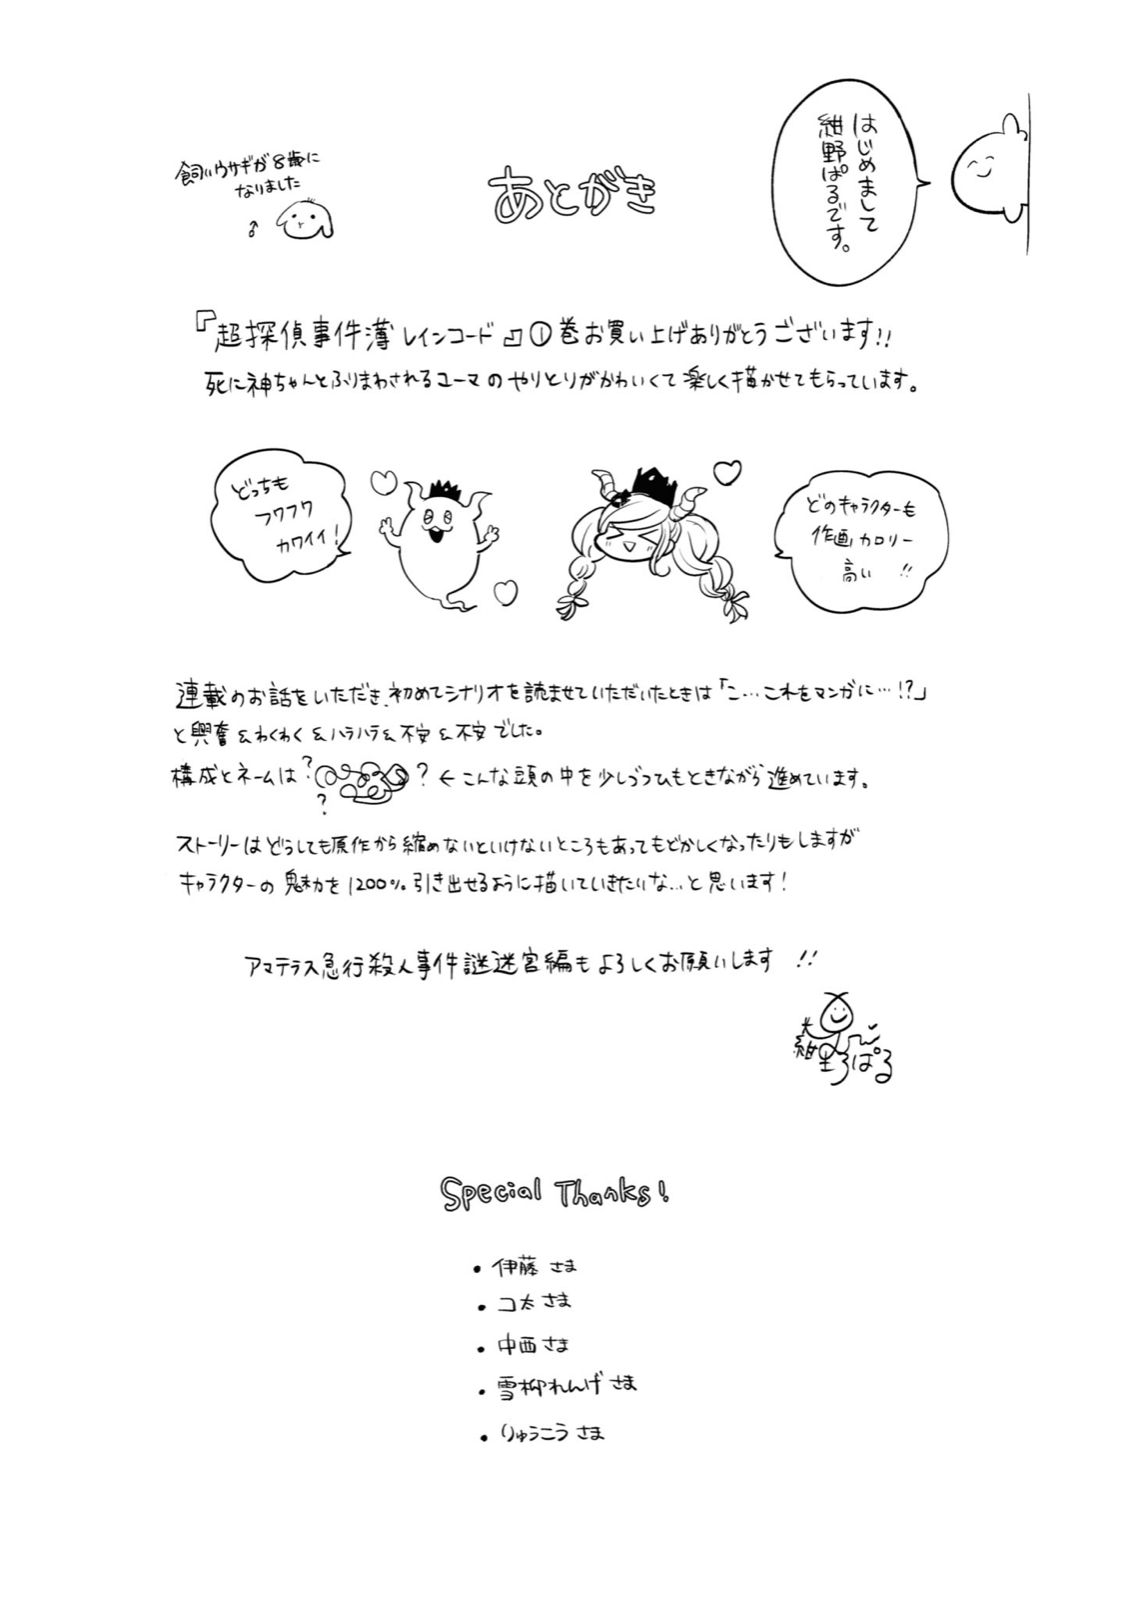 はじめまして
紺野ぱるです。
あとがき
飼いウサギが8歳に
なりました
♂
『超探偵事件簿レインコード』①巻お買い上げありがとうございます!!
死に神ちゃんとふりまわされるユーマのやりとりがかわいくて楽しく描かせてもらっています。
どっちも
フワフワ
カワイイ!
どのキャラクターも
作画カロリー
高い !!
連載のお話をいただき、初めてシナリオを読ませていただいたときは「こ…これをマンガに…!?」
と興奮&わくわく&ハラハラ&不安&不安でした。
構成とネームは ? ? ? ←こんな頭の中を少しづつひもときながら進めています。
ストーリーはどうしても原作から縮めないといけないところもあってもどかしくなったりもしますが
キャラクターの魅力を1200%引き出せるように描いていきたいな…と思います!
アマテラス急行殺人事件謎迷宮編もよろしくお願いします !!
紺野ぱる
Special Thanks!
・伊藤さま
・コ太さま
・中西さま
・雪柳れんげさま
・りゅうこうさま